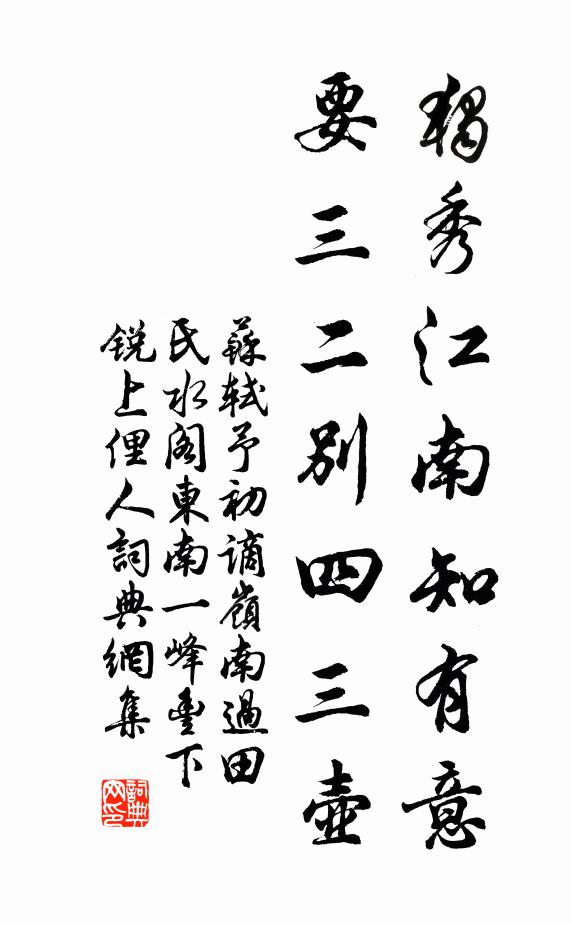 獨秀江南知有意
要三二別四三壺
蘇軾予初謫嶺南過田
氏水閣東南一峰豐下
銳上俚人詞典網集
詞典网印